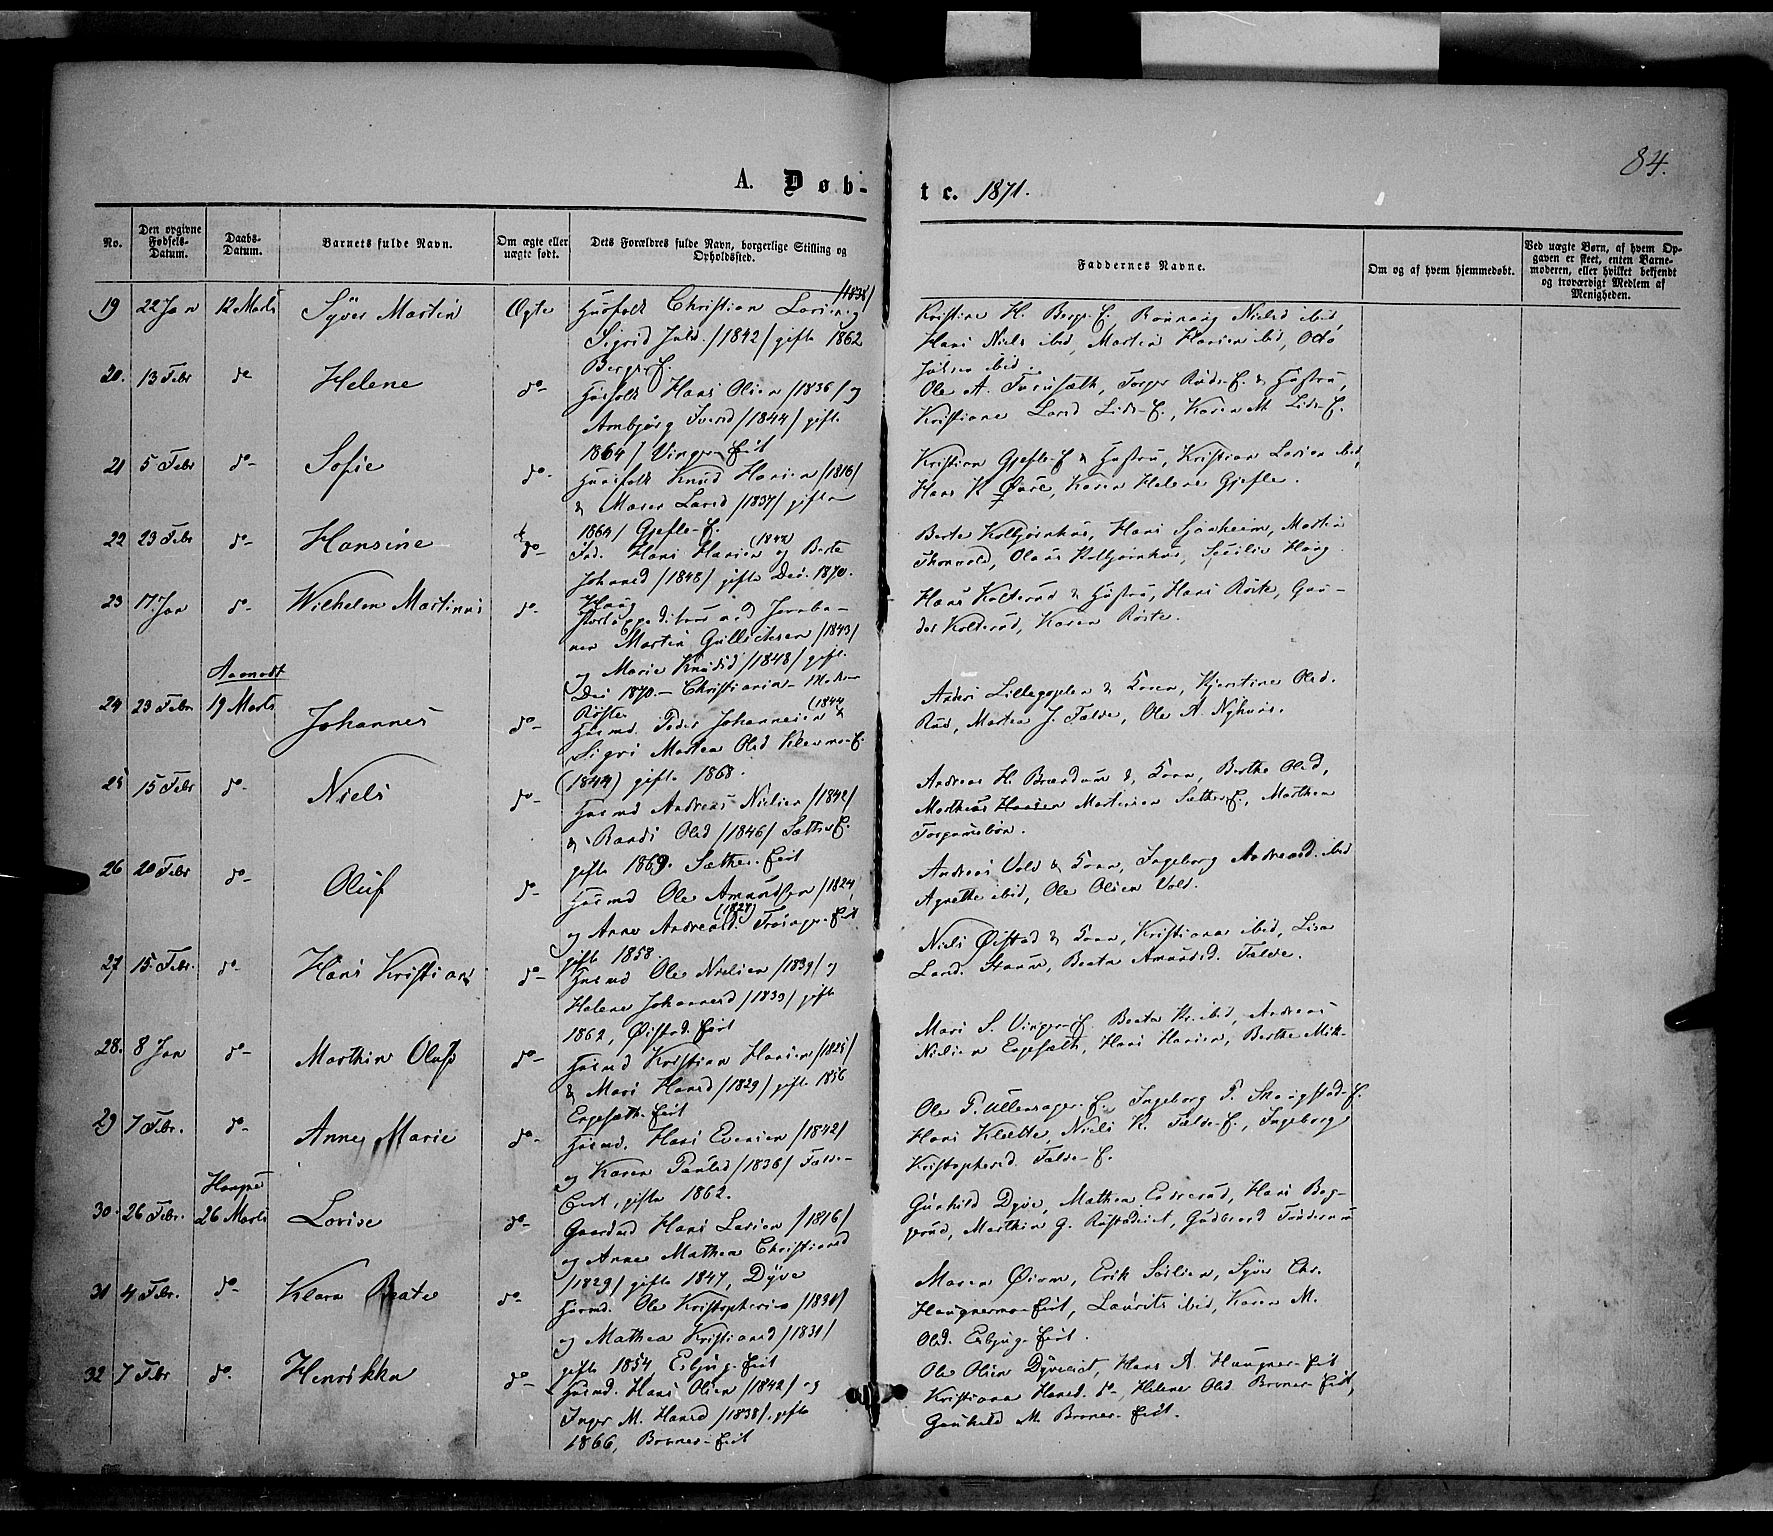 84.
A. Døb-
t e. 1871.
No.
Den opgivne Fødsels-Datum.
Daabs-Datum.
Barnets fulde Navn.
Om ægte eller uægte født.
Dets Forældres fulde Navn, borgerlige Stilling og Opholdssted.
Faddernes Navne.
Om og af hvem hjemmedøbt.
Ved uægte Børn, af hvem Opgaven er skeet, enten Barnemoderen, eller hvilket bekjendt og troværdigt Medlem af Menigheden.
19 22 Jan 12 Marts Syver Martin Ægte Husfolk Christian Larsen og /1838/
Sigrid Julsd. /1842/ gifte 1862
Berger E.
Kristine H. Berge E. Rønnaug Nielsd ibid,
Hans Niels ibid, Martin Hansen ibid, Otto
Julsen ibid.
20. 13 Febr do Helene do- Husfolk Hans Olsen /1836/ og
Arnbjørg Iversd /1844/ gifte
1864/ Vinger Eiet
Ole A. Furusæth, Torger Ruds-E. & Hustru,
Kristiane Larsd Lids-E., Karen M. Lids-E.
21 5 Febr do- Sofie do- Husfolk Knud Hansen /1816/
& Maren Larsd /1837/ gifte
1864/ Gjefle-E.
Kristian Gjefle-E & Hustru, Kristian Larsen ibid,
Hans K. Øure, Karen Helene Gjefle.
22 23 Febr do- Hansine do- Ind. Hans Hansen (1844) og Berte
Johansd /1848/ gifte Dec. 1870.
Haug
Berte Kolbjørnhus, Hans Sjonheim, Martin
Thorvold, Olaus Kolbjørnhus, Secilie Haug
23 17 Jan do- Wilhelm Martinus do- Postexpeditør ved Jernba-
nen Martin Gulliksen /1843/
og Marie Knudsd /1848/ gift.
Dec 1870.- Christiania-
Røste
Hans Kolterud & Hustru, Hans Røste, Gun-
der Kolterud, Karen Røste.
Aamodt
24 23 Febr 19 Marts Johannes do- Husmd. Peder Johannesen (1844) &
Sigri Martea Olsd
(1844) gifte 1868.
Anders Lillegoplen & Kone, Kjerstine Olsd.
Rud, Martea J. Falde, Ole A. Nyhus.
25 15 Febr do- Niels do- Husmd Andreas Nielsen /1842/
& Randi Olsd /1846/ Sætter-E.
gifte 1869. Sæther-Eiet
Andreas H. Brærdum & Kone, Berthe Olsd,
Martheus Hansen Martinsen Sæther-E., Marthea
26 20 Febr do- Oluf do- Husmd Ole Amundsen /1824/
og Anne Andreasd. (1824) Frøinge-Eiet
gifte 1858
Andreas Vold & Kone, Ingeborg Andreasd. ibid
Agnethe ibid, Ole Olsen Vold.
27 15. Febr. do- Hans Kristian do- Husmd Ole Nielsen /1839/ og
Helene Johannesd /1833/ gifte
1862, Øistad-Eiet
Niels Øistad & Kone, Kristiane ibid, Lisa
Larsd. Beata Amundsd. Falde.
28. 8 Jan do- Marthin Oluf do- Husmd Kristian Hansen /1825/
& Mari Hansd /1829/ gifte 1856
Engesæth-Eiet
Mari S. Vinger-E. Beata Kr. ibid, Andreas
Nielsen Engesæth, Hans Hansen, Berthe Mik-
29 7 Febr. do- Anne Marie do- Husmd. Hans Evensen /1842/
og Karen Paulsd /1836/ Falde-
Eiet, gifte 1862.
Ole P. Ullensager-E., Ingeborg P. Skaugstad-E.
Hans Klætte, Niels K. Falde-E., Ingeborg
Kristophersd. Falde-E.
Haugne
30. 26 Febr. 26 Marts Lovise do- Gaardmd Hans Larsen /1816/
og Anne Mathea Christiansd
/1829/ gifte 1847, Dyve
Gunhild Dyve, Mathea Evverud, Hans Bag-
gerud, Marthin G. Røstadeiet, Gudbrand
31 4 Febr. do- Klara Beate do- Husmd. Ole Kristophersen /1830/
og Mathea Kristiansd /1831/
gifte 1854 Esbjug-Eiet
Maren Øium, Erik Sørlien, Syver Chr.
Haugnermo-Eiet, Laurits ibid, Karen M.
Olsd. Esbjug-Eiet.
32 7 Febr do. Henrikka do- Husmd. Hans Olsen /1842/ og
Inger M. Hansd /1838/ gifte
1866, Brones-Eiet
Ole Olsen Dyveeiet, Hans A. Haugner-Eiet
Kristiane Hansd. do-, Helene Olsd Broner-Eiet,
Gunhild M. Broner-Eiet.